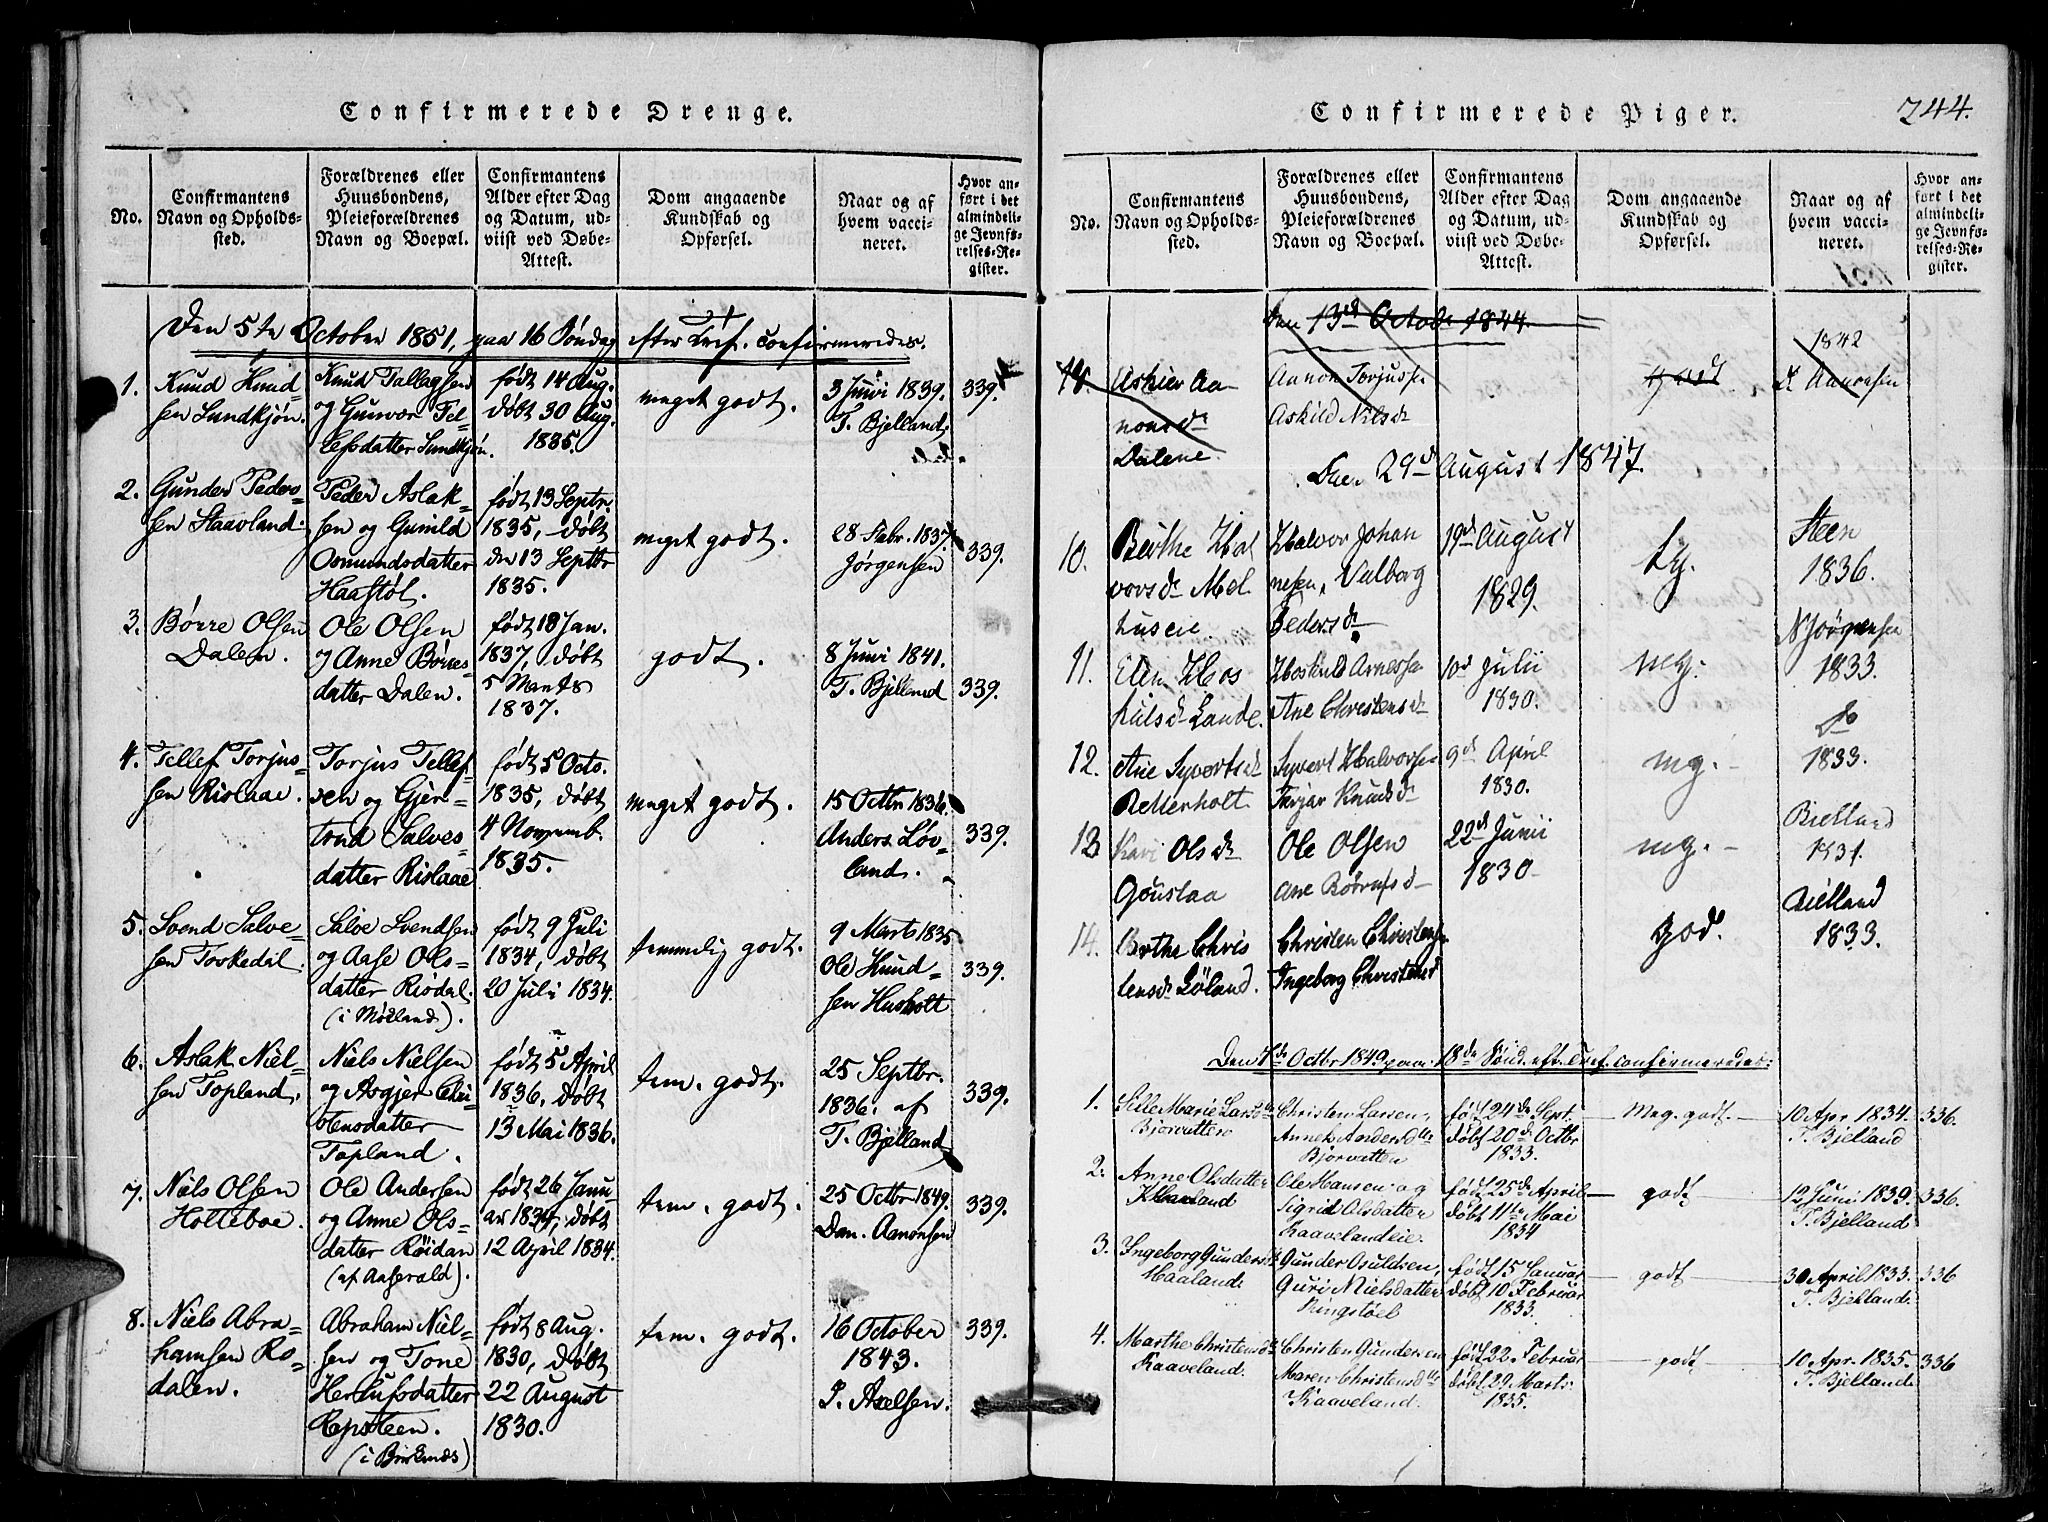 Confirmerede Drenge.
No.
Confirmantens
Navn og Opholds-
sted.
Forældrenes eller
Huusbondens,
Pleieforældrenes
Navn og Boepæl.
Confirmantens
Alder efter Dag
og Datum, ud-
viist ved Døbe-
Attest.
Dom angaaende
Kundskab og
Opførsel.
Naar og af
hvem vacci-
neret.
Hvor an-
ført i det
almindeli-
ge Jevnfø-
relses-Re-
gister.
Den 5te October 1851, paa 16 Søndag efter Tref. confirmeredes.
1.
Knud Knud-
sen Sundkjøn.
Knud Tallagsen
og Gunvor Tel-
lefsdatter Sundkjøn.
født 14 Aug.
døbt 30 Aug.
1835.
meget godt.
3 Juni 1839.
T. Bjelland.
339.
2.
Gunder Peders-
sen Staavland.
Peder Aslak-
sen og Gunild
Osmundsdatter
Haastøl.
født 13 Septr.
1835, døbt
den 13 Septbr
1835.
meget godt.
28 Febr. 1837.
Jørgensen
339.
3.
Børre Olsen
Dalen.
Ole Olsen
og Anne Børres-
datter Dalen.
født 18 Jan.
1837, døbt
5 Marts
1837.
godt.
8 Juni 1841.
T. Bjelland
339.
4.
Tellef Torjus-
sen Rislaae.
Torjus Tellef-
sen og Gjer-
trud Salves-
datter Rislaae
født 5 Octo.
1835, døbt
4 Novemb.
1835.
meget godt.
15 Octbr 1836
Anders Løv-
land.
339.
5.
Svend Salve-
sen Torkedal.
Salve Svendsen
og Aase Ols-
datter Risdal.
(i Mosland).
født 9 Juli
1834, døbt
20 Juli 1834.
temmelig godt.
9 Mart 1835
Ole Knud-
sen Husholt
339.
6.
Aslak Niel-
sen Topland.
Niels Nielsen
og Asgjer Chri-
stensdatter
Topland.
født 5 April
1836, døbt
13 Mai 1836.
tem. godt.
25 Septbr.
1836. af
T. Bjelland
339.
7.
Niels Olsen
Holleboe.
Ole Andersen
og Anne Ols-
datter Røidan
(af Aaserald).
født 26 Janu-
ar 1834, døbt
12 April 1834.
tem. godt.
25 Octbr 1849.
Dan. Aanonsen
339.
8.
Niels Abra-
hamsen Ro-
dalen.
Abraham Niel-
sen og Tone
Herlufsdatter
Repsteen.
født 8 Aug.
1830, døbt
22 August
1830.
tem. godt.
16 October
1843.
P. Axelsen.
339.
Confirmerede Piger.
744.
No.
Confirmantens
Navn og Opholds-
sted.
Forældrenes eller
Huusbondens,
Pleieforældrenes
Navn og Boepæl.
Confirmantens
Alder efter Dag
og Datum, ud-
viist ved Døbe-
Attest.
Dom angaaende
Kundskab og
Opførsel.
Naar og af
hvem vacci-
neret.
Hvor an-
ført i det
almindeli-
ge Jevnfø-
relses-Re-
gister.
den 13de Octob. 1844.
Aa-
nonsd.
Dalene
Aanon Torjussen
Askild Nilsd.
god
1842
Aanonsen
Den 29d August 1847.
10.
Berthe Hal
vorsd. Mol
husene.
Halvor Johan
nesen, Valborg
Pedersd.
19d August
1829.
tg.
Steen
1836.
11.
Elen Hos
kulsd. Lande.
Hoskuld Arnessen
Ane Christensd.
10d Julii
1830.
mg.
N Jørgensen
1833.
12.
Ane Syvertsd.
Retterholt.
Syvert Halvorsen
Knudsd.
9d April
1830.
mg.
Do
1833.
13
Kari Olsd.
Goustaa
Ole Olsen
Ane Børrufsd.
22d Junii
1830
mg.
Bielland
1831.
14.
Berthe Chris
tensd. Løland.
Christen Christens.
Ingeborg Christensd
god.
Bielland
1833.
Den 7de Octbr 1849 paa 18de Sönd. eft. Tref. confirmeredes:
1.
Sille Marie Larsdtr
Bjorvatten
Christen Larsen,
Anne Andersdtr
Bjorvatten
født 24de Sept.
døbt 20de Octbr
1833.
Meg. godt
10 Apr. 1834.
T. Bjelland
336.
2.
Anne Olsdatter
Kaaveland
Ole Hansen og
Sigrid Olsdatter
Kaavelandeie.
født 25de April
døbt 11te Mai
1834
godt
12 Juni 1839.
T. Bjelland
336.
3.
Ingeborg Gundersdtr
Haaland.
Gunder Osuldsen,
Guri Nielsdatter
Ringstøel
født 15 Januar
døbt 10 Februar
1833.
godt
30 April 1833.
T. Bjelland.
336
4.
Marthe Christensdtr
Kaaveland.
Christen Gundersen
Maren Christensdtr
Kaaveland.
født 22. Februar
døbt 29 Marts
1835.
godt
10 Apr. 1835.
T. Bjelland.
336